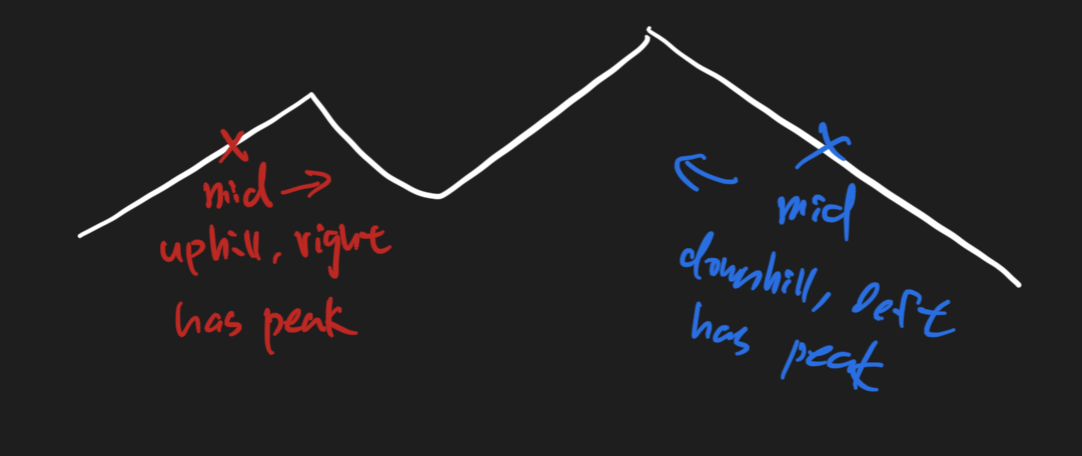 mid →
uphill, right
has peak
←
mid
downhill, left
has peak